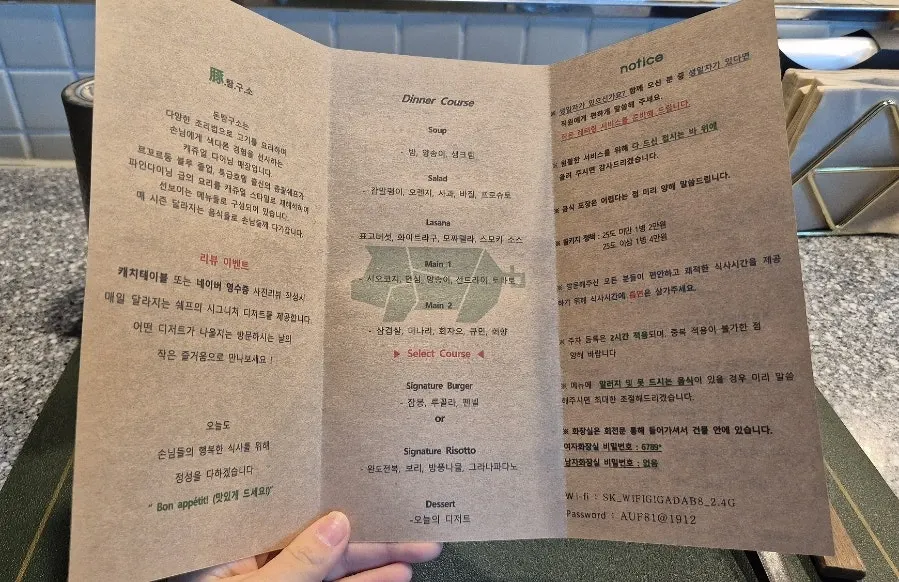 豚.탐.구.소
돈탐구소는
다양한 조리법으로 고기를 요리하여
손님에게 색다른 경험을 선사하는
캐쥬얼 다이닝 매장입니다.
르꼬르동 블루 졸업, 특급호텔 출신의 총괄쉐프가
파인다이닝 급의 요리를 캐쥬얼 스타일로 재해석하여
선보이는 메뉴들로 구성되어 있습니다.
매 시즌 달라지는 음식들로 손님들께 다가갑니다.
리뷰 이벤트
캐치테이블 또는 네이버 영수증 사진리뷰 작성시
매일 달라지는 쉐프의 시그니처 디저트를 제공합니다.
어떤 디저트가 나올지는 방문하시는 날의
작은 즐거움으로 만나보세요 !
오늘도
손님들의 행복한 식사를 위해
정성을 다하겠습니다
" Bon appétit! (맛있게 드세요!)"
Dinner Course
Soup
- 밤, 양송이, 생크림
Salad
- 감말랭이, 오렌지, 사과, 바질, 프로슈토
Lasana
- 표고버섯, 화이트라구, 모짜렐라, 스모키 소스
Main 1
- 시오코지, 안심, 양송이, 선드라이 토마토
Main 2
- 삼겹살, 미나리, 회자오, 큐민, 쯔란
▶ Select Course ◀
Signature Burger
- 잠봉, 루꼴라, 펜넬
or
Signature Risotto
- 완도전복, 보리, 방풍나물, 그라나파다노
Dessert
-오늘의 디저트
notice
※ 생일자가 있으신가요? 함께 오신 분 중 생일자가 있다면
직원에게 편하게 말씀해 주세요.
작은 레터링 서비스를 준비해 드립니다.
※ 원활한 서비스를 위해 다 드신 접시는 바 위에
올려 주시면 감사드리겠습니다.
※ 음식 포장은 어렵다는 점 미리 양해 말씀드립니다.
※ 콜키지 정책 : 25도 미만 1병 2만원
25도 이상 1병 4만원
※ 방문해주신 모든 분들이 편안하고 쾌적한 식사시간을 제공
하기 위해 식사시간에 흡연은 삼가주세요.
※ 주차 등록은 2시간 적용되며, 중복 적용이 불가한 점
양해 바랍니다
※ 메뉴에 알러지 및 못 드시는 음식이 있을 경우 미리 말씀
해주시면 최대한 조절해드리겠습니다.
※ 화장실은 회전문 통해 들어가셔서 건물 안에 있습니다.
여자화장실 비밀번호 : 6789*
남자화장실 비밀번호 : 없음
Wi-fi : SK_WIFIGIGADAB8_2.4G
Password : AUF81@1912